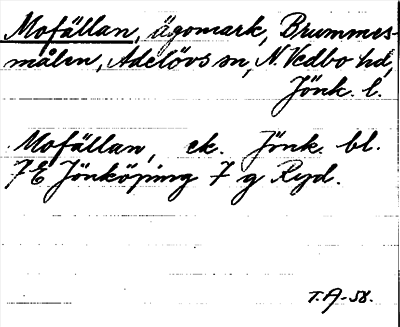 Mofällan, ägomark, Brummes-
målen, Adelövs sn, N. Vedbo hd,
Jönk. l.
Mofällan, ek. Jönk. bl.
7E Jönköping 7 g Ryd.
T.A-58.